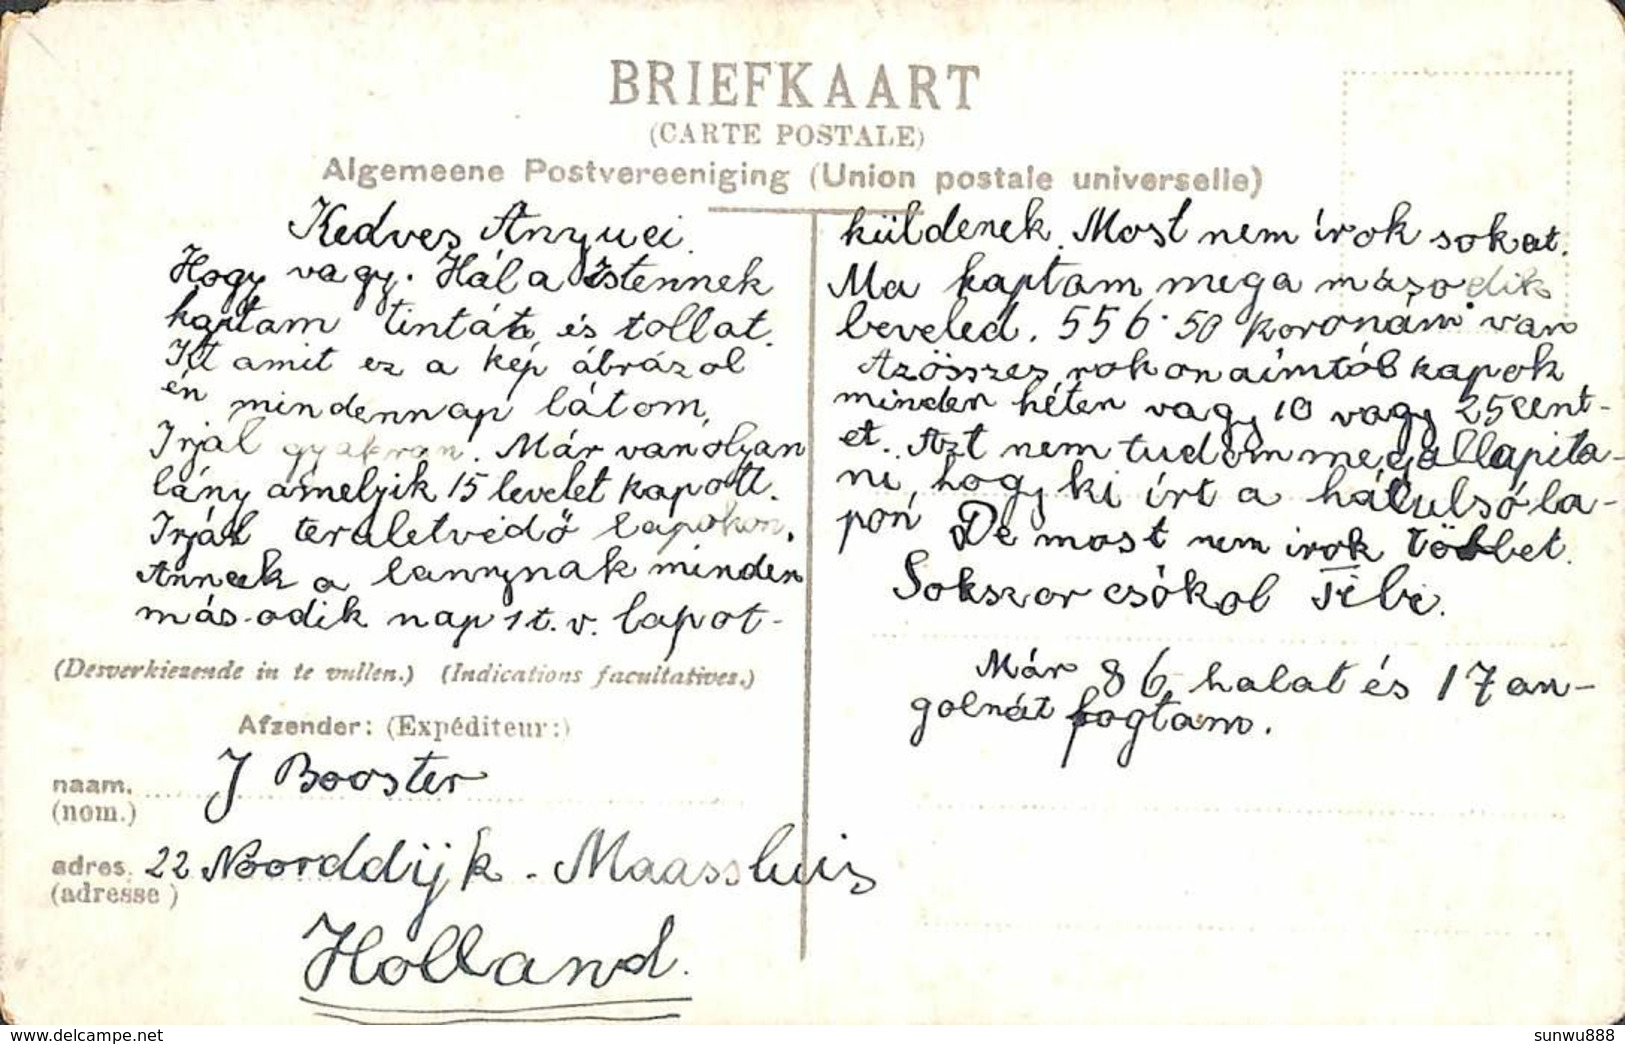 BRIEFKAART
(CARTE POSTALE)
Algemeene Postvereeniging (Union postale universelle)
Kedves Anyuci
Hogy vagy. Hál a Istennek
kaptam tintát és tollat.
Itt amit ez a kép ábrázol
én mindennap látom,
Irjál gyakran. Már van olyan
lány amelyik 15 levelet kapott.
Irjál teruletvédő lapokon.
Annak a lannynak minden
második nap 1 t. v. lapot-
küldenek. Most nem írok sokat.
Ma kaptam meg a második
leveled. 556·50 koronám van
Azösszes rokonaimtól kapok
minden héten vagy 10 vagy 25 cent-
et. Azt nem tudom megallapita-
ni, hogy ki írt a hátulsó la-
pon De most nem irok többet.
Sokszor csókol Tibi.
Már 86 halat és 17 an-
golnát fogtam.
(Desverkiezende in te vullen.) (Indications facultatives.)
Afzender: (Expéditeur:)
naam. J Booster
(nom.)
adres. 22 Noorddijk - Maassluis
(adresse)
Holland.
www.delcampe.net
sunwu888